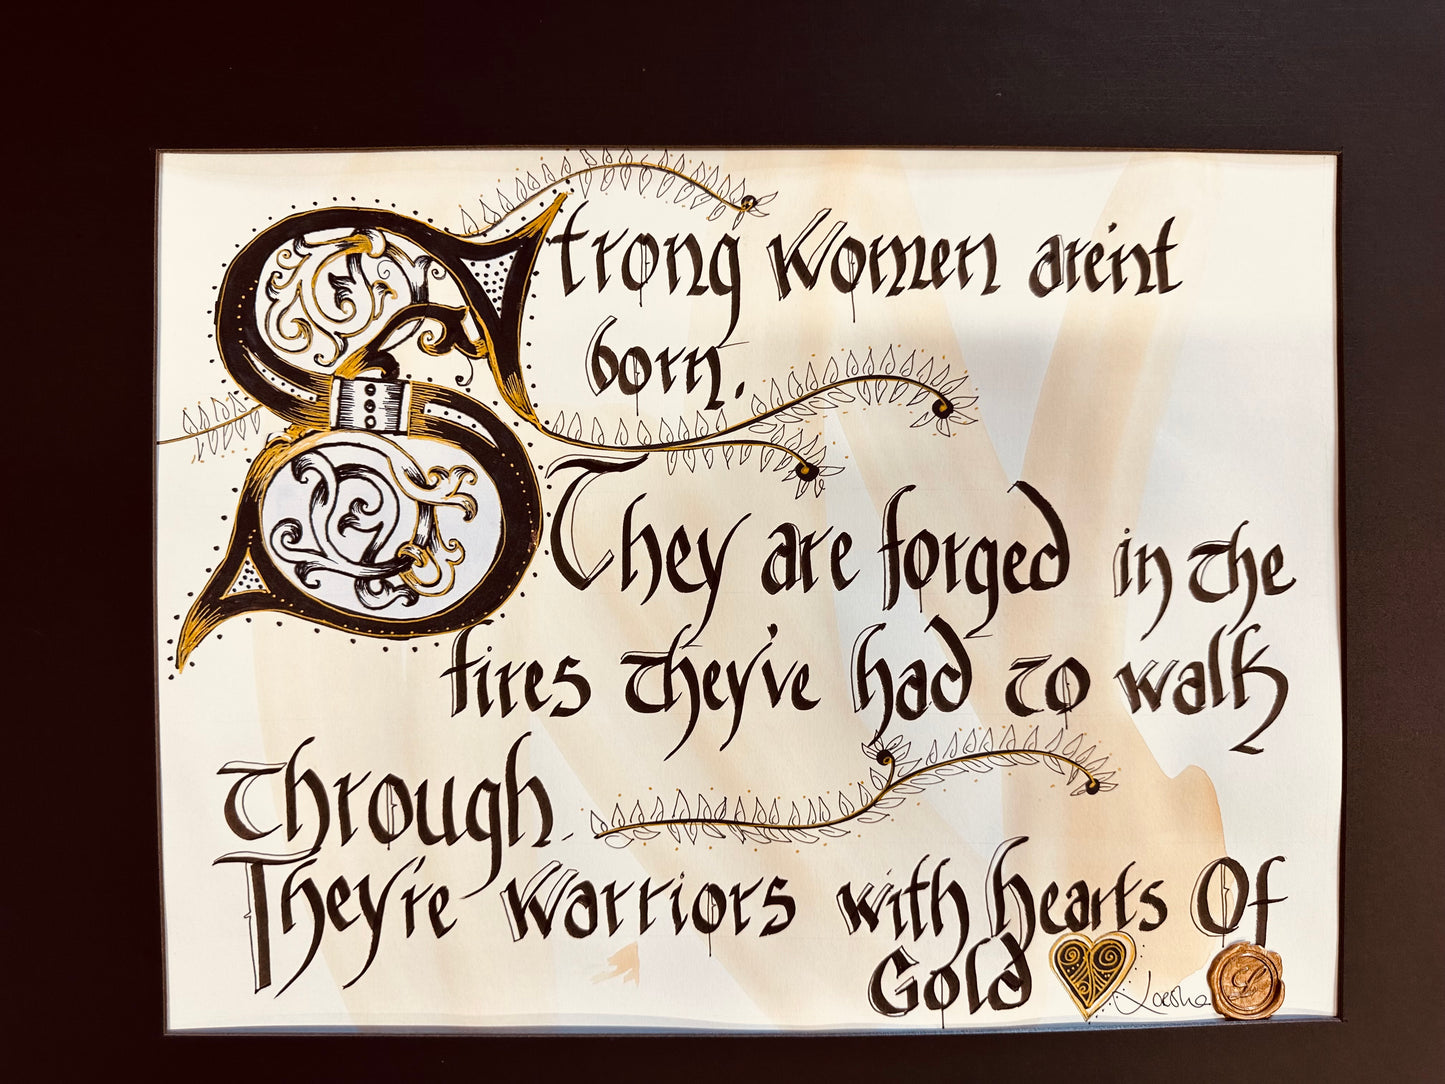 Strong Women aren't
born.
They are forged in the
fires they've had to walk
through.
They're Warriors with hearts Of
Gold
L